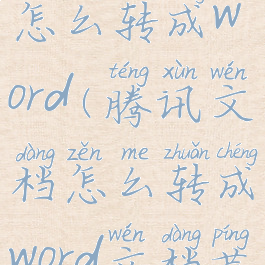 怎么转成w
téng xùn wén
ord（腾讯文
dàng zěn me zhuǎn chéng
档怎么转成
wén dàng píng
word文档苹